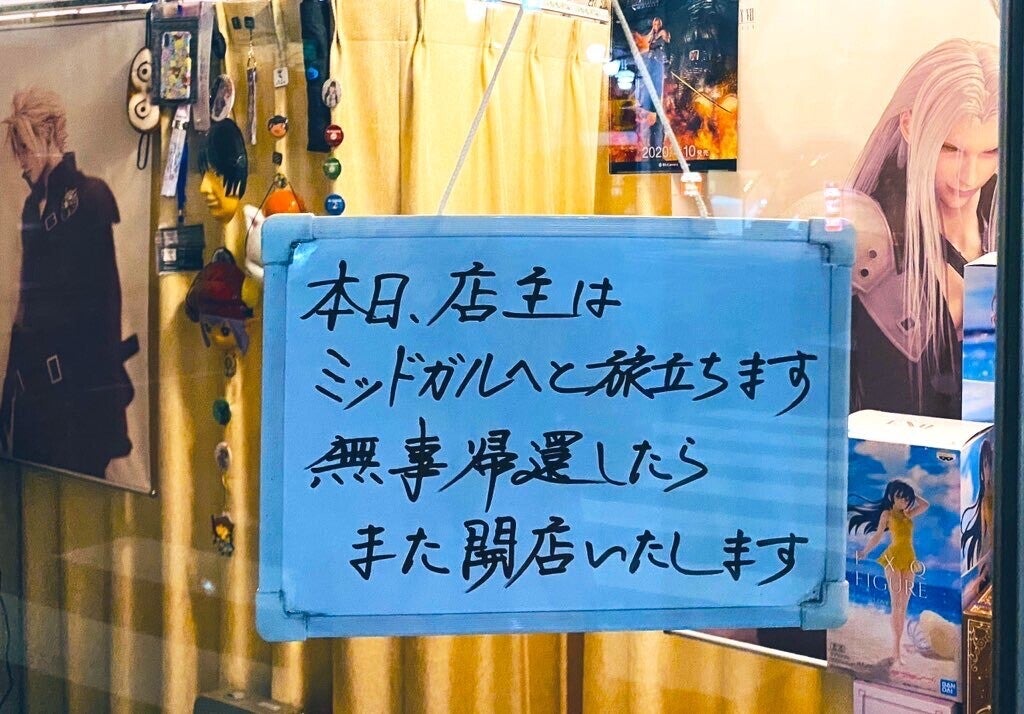 2020.4.10発売
本日、店主は
ミッドガルへと旅立ちます
無事帰還したら
また開店いたします
EXQ
FIGURE
BAN
DAI